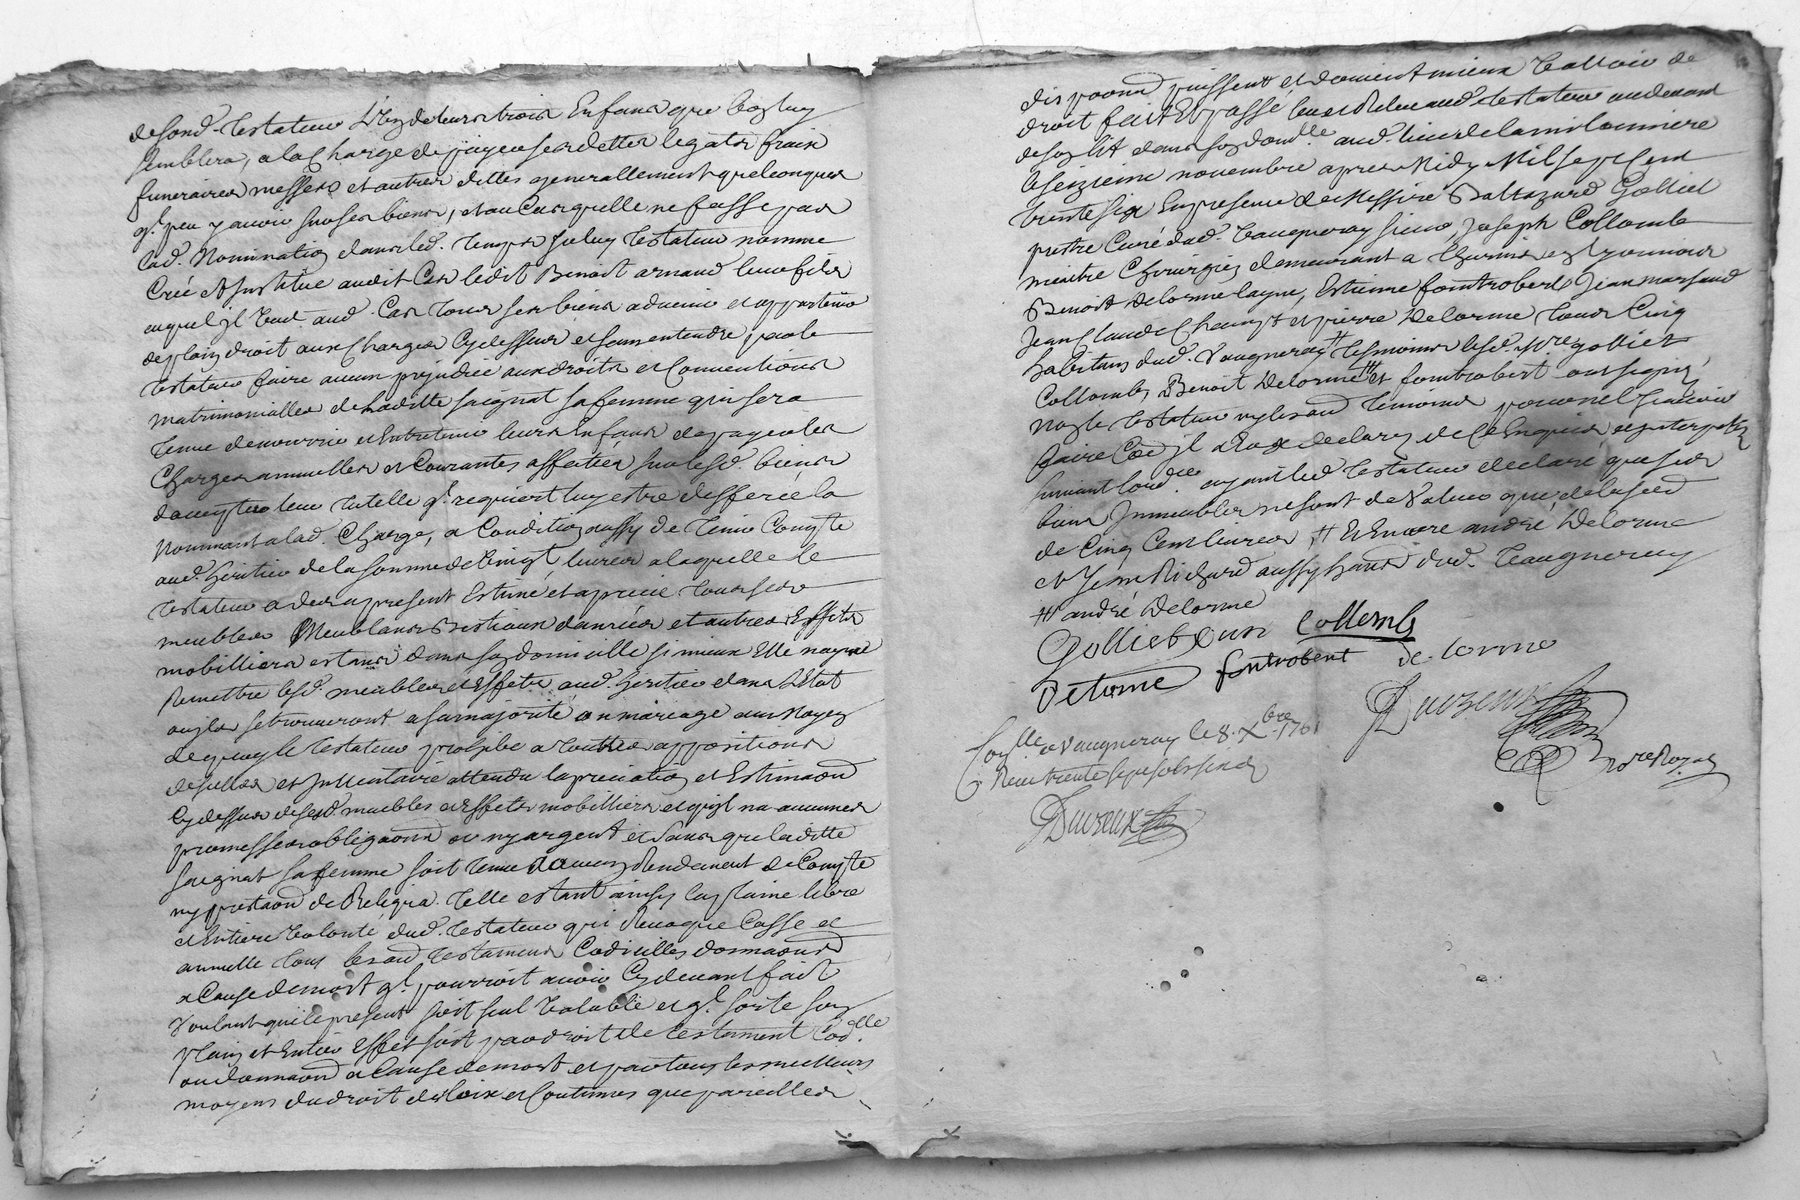 desond. Testateur L'un de leurs trois Enfans que bon luy
semblera, a la Charge de payer ses dettes legats fraix
funeraires messes et autres dittes generallement quelconques
qt. peu y avoir sur ses biens, et au Cas qu'elle ne fasse pas
lad. Nomination dans led. temps Iceluy testateur nomme
Crée et Institue audit Cas ledit Benoist arnaud leur fils
auquel jl aud. Cas tous ses biens advenir et appartenir
de plain droit aux Charges Cy dessus et sans entendre par le
testateur faire aucun prejudice aux droits et Conventions
matrimonialles de laditte saignat sa femme qui sera
tenue de nourrir et Entretenir leurs Enfans de payer les
Charges annuelles et Courantes affectées sur lesd. biens
leur tutelle ql. requiert luy estre defferée la
Nommant a lad. Charge, a Condition aussy de tenir Compte
aud. heritier de la somme de vingt livres a laquelle le
testateur a des a present Estimé et aprecié tous ses
meubles Meublans Bestiaux danrées et autres Effets
mobilliers estans dans son domicille si mieux Elle n'ayme
Remettre lesd. meubles et Effets aud. heritier dans l'Etat
qu'jls se trouveront a sa majorité ou mariage au Moyen
de quoy le testateur prohibe a toutes appositions
de sellés et Inventaire attendu la preciation et Estimaon
Cy dessus desd. meubles et Effets mobilliers et qu'jl n'a aucunes
promesses obligaons ny argent et sans que laditte
saignat sa femme soit tenue d'aucun Rendement de Compte
ny prestaon de Reliqua. Telle estant ainsy la plaine libre
et Entiere Volonté dud. testateur qui Revoque Casse et
annulle tous testamens Codicilles donnaons
a Cause de mort ql. pourroit avoir Cy devant fait
Voulant que le present soit seul Valable et ql. sorte son
plain et Entier Effet soit par droit de testament Codlle
ou donnaon a Cause de mort et par tous les meilleurs
moyens du droit des loix et Coutumes que pareilles
dispoons puissent et doivent mieux Valloir de
droit fait Et passé aud. testateur au devant
de son lit dans son domlle. aud. lieu de la milonniere
le seizieme novembre apres Midy Mil sept Cent
trente six En presence de Messire Baltazard Golliet
prestre Curé dud. Vaugneray sieur Joseph Collomb
maitre Chirurgien demeurant a thurins et honneurs
Benoist delorme layne, Estienne fontrobert Jean marsaud
Jean Claude et pierre Delorme tous Cinq
habitans dud. Vaugneray # tesmoins lesd. srs golliet
Collomb, Benoit Delorme ## et fontrobert ont signé
non le testateur ny lesd. temoins pour ne le sçavoir
faire Comme jl Ont declaré de Ce Enquis et interpellés
suivant lordce ayant led. testateur declaré que ses
biens Immeubles ne sont de Valeur que de la somme
de Cinq Cent livres, # Et Encore andré Delorme
et Jean Richard aussy habitans dud. Vaugneray
## andré Delorme
Golliet Curé Collomb
Delorme fontrobert de lorme
Duvreux
Conllé a Vaugneray le 8. Xbre 1761
Reçu trente sept sols six d
Duvreux
Nore Royal